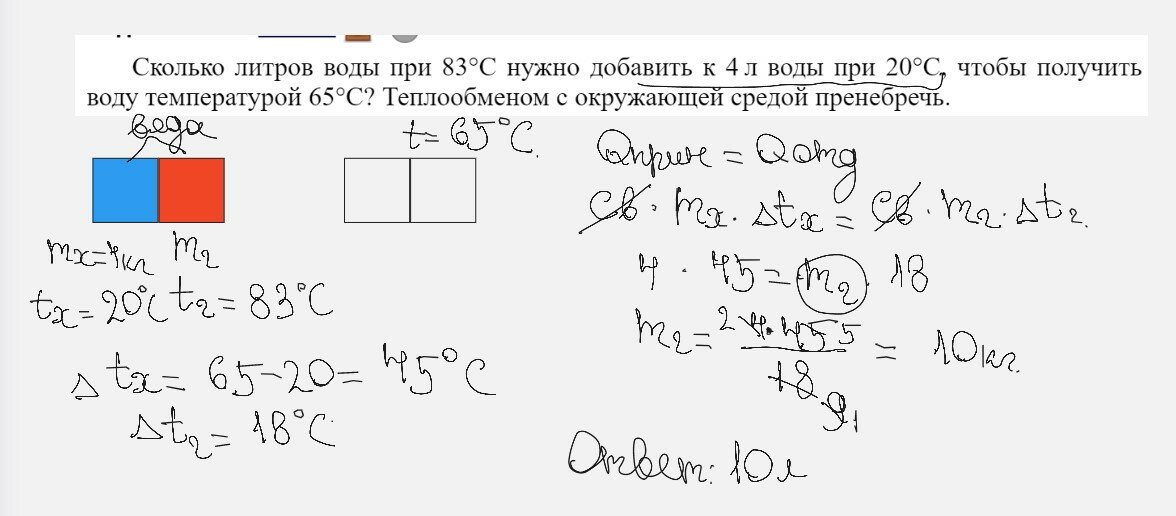 Сколько литров воды при 83°С нужно добавить к 4 л воды при 20°С, чтобы получить
воду температурой 65°С? Теплообменом с окружающей средой пренебречь.
вода
t= 65°C.
mх=4кг m2
tх=20°C t2=83°C
Δtх= 65-20= 45°C
Δt2=18°C
Qприн = Qотд
Cв·mх·Δtх= Cв·m2·Δt2.
4·45=m2·18
m2= 2 4·45 5 / 18 9 1 = 10кг.
Ответ: 10л